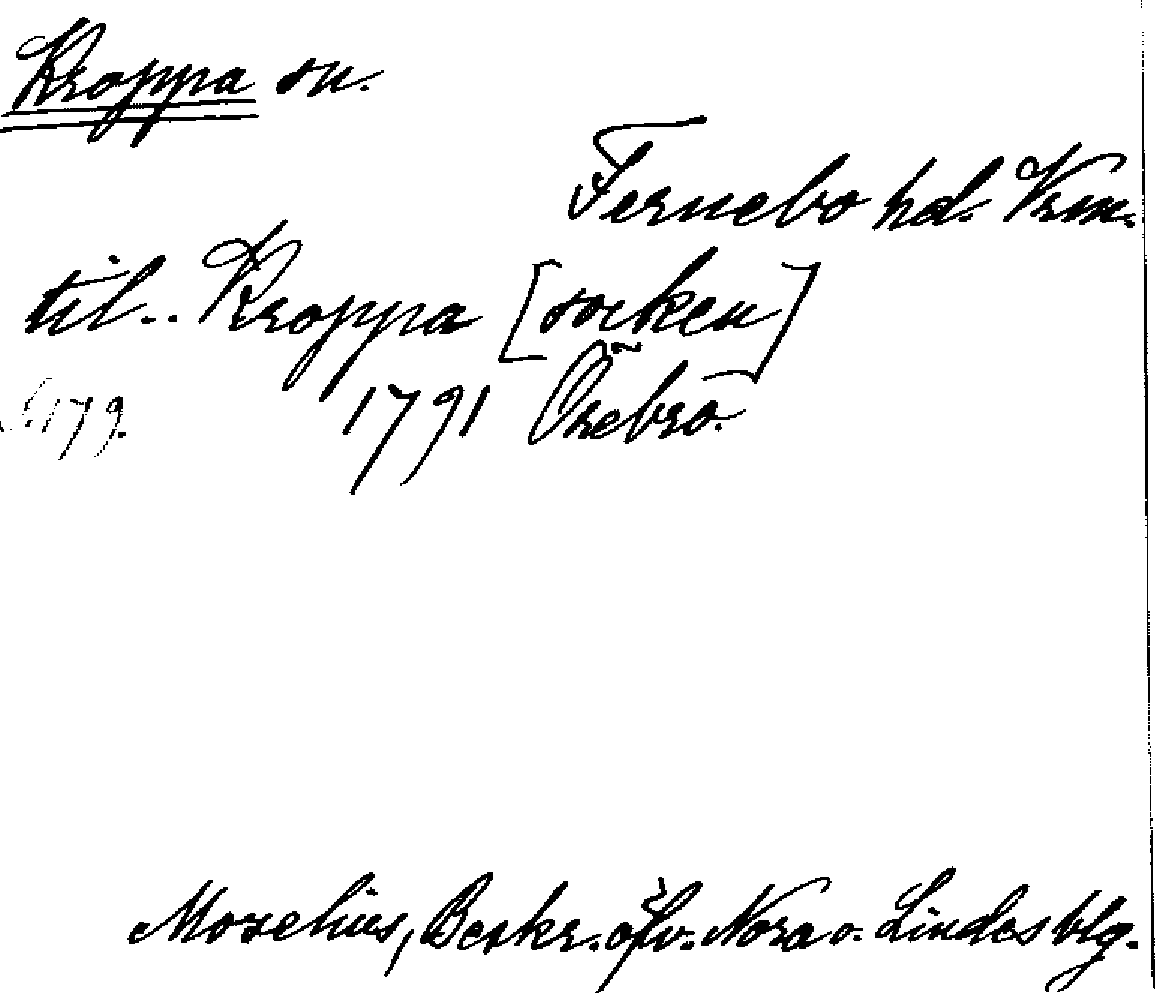 Kroppa sn.
Fernebo hd. Vrm.
til.. Kroppa [socken]
179. 1791 Örebro.
Morelius, Beskr. öfv. Nora o. Lindes blg.